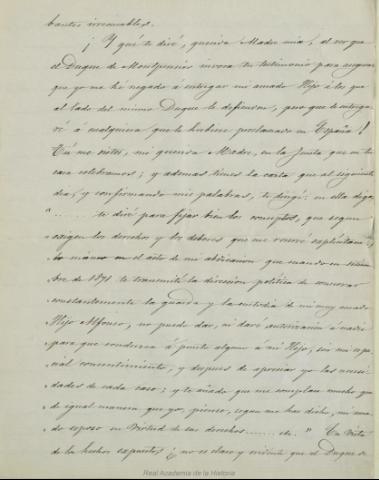 bantes irrecusables.
¡Y qué te diré, querida Madre mia, al ver que
el Duque de Montpensier invoca tu testimonio para asegurar
que yo me he negado á entregar mi amado Hijo á los que
al lado del mismo Duque le defienden, pero que le entrega-
ré á cualquiera que le hubiese proclamado en España!
Tú me visteis, mi querida Madre, en la Junta que en tu
casa celebramos; y ademas tienes la carta que al siguiente
dia, y confirmando mis palabras, te dirigí: en ella digo:
"....... te diré para fijar bien los conceptos, que segun
exigen los derechos y los deberes que me reservé
en el acto de mi abdicacion que cuando en
bre de 1871 te transmití la direccion politica de conservar
constantemente la guarda y la custodia de mi muy amado
Hijo Alfonso, no puedo dar, ni daré autorizacion á nadie
para que conduzca á punto alguno á mi Hijo, sin mi espe-
cial consentimiento, y despues de apreciar yo las necesi-
dades de cada caso; y te añado que me complace mucho que
de igual manera que yo, piense, segun me has dicho, mi ama-
do esposo en virtud de sus derechos....... etc." En vista
de los hechos expuestos ¿no es claro y evidente que el Duque de
Real Academia de la Historia